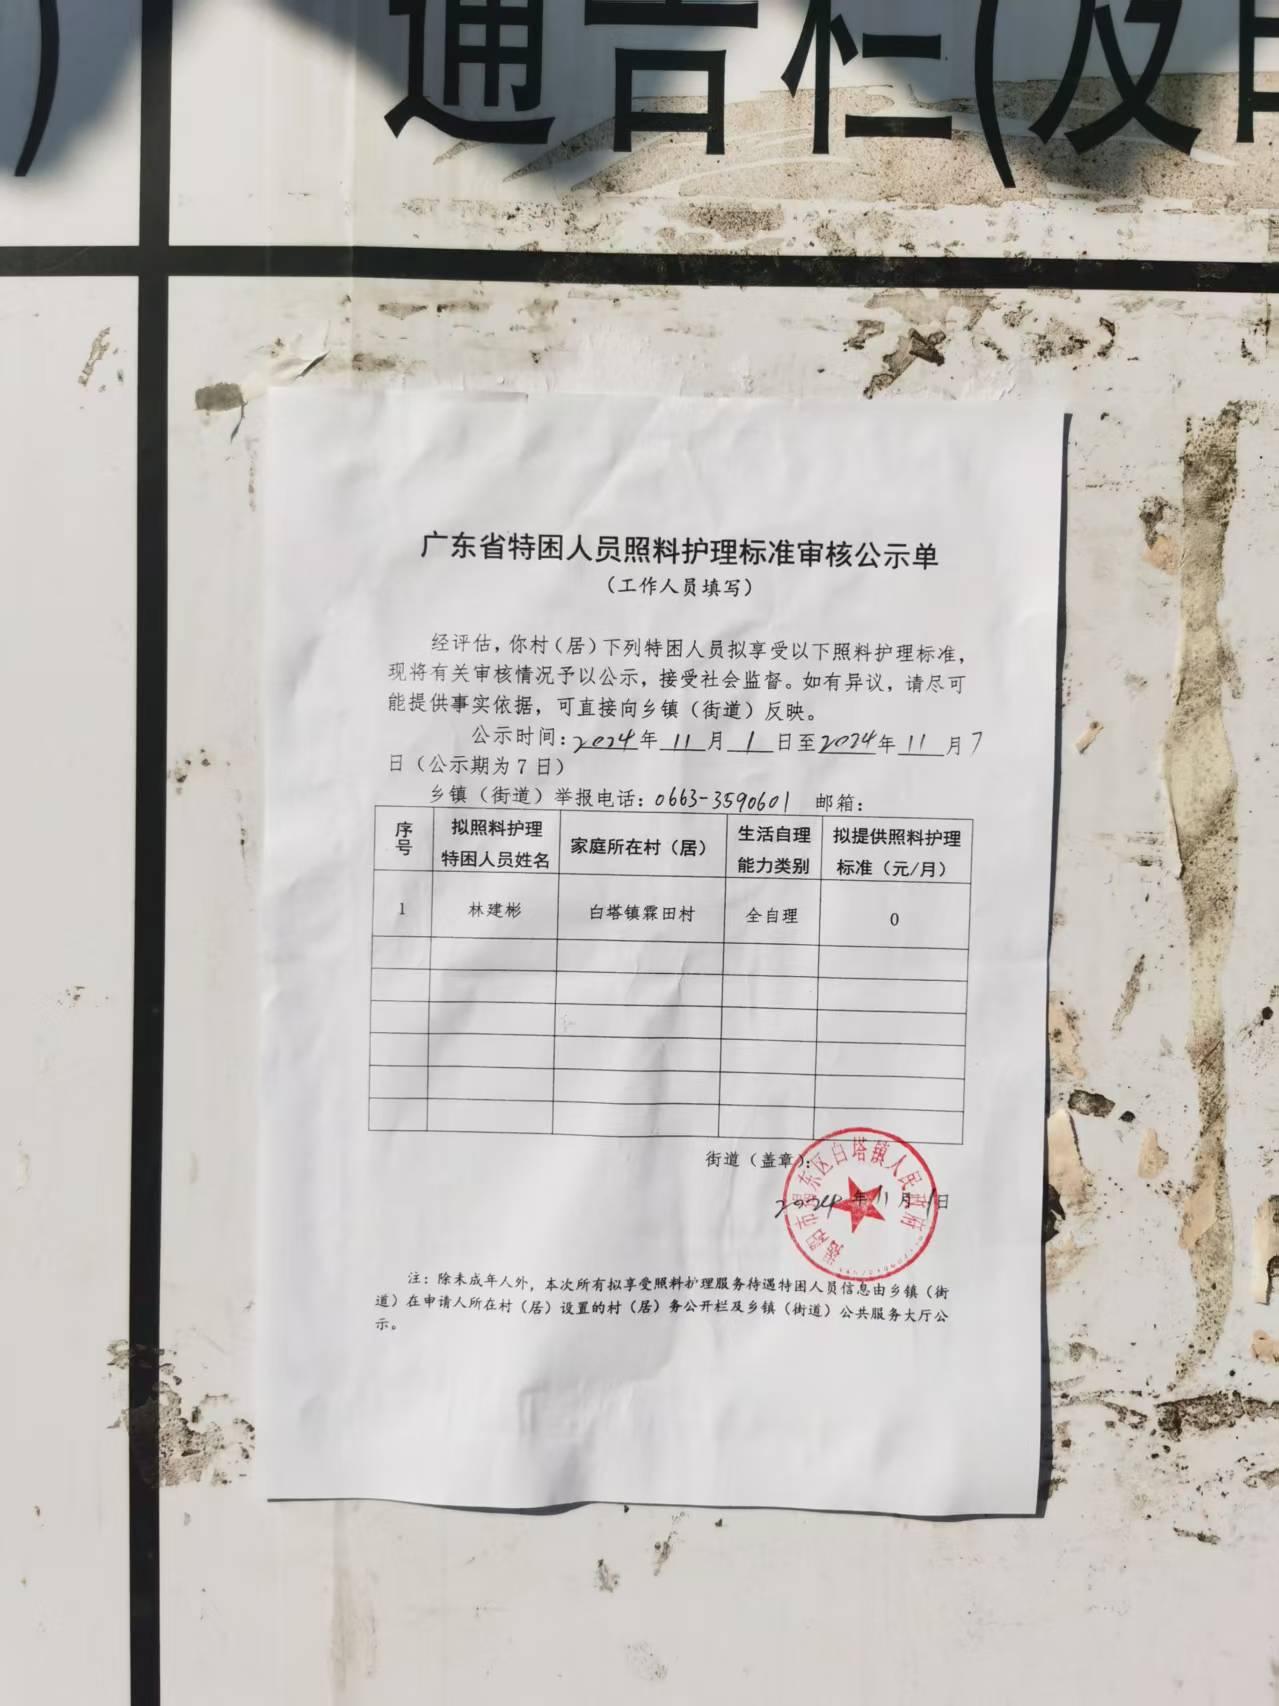 通告栏(及
广东省特困人员照料护理标准审核公示单
（工作人员填写）
经评估，你村（居）下列特困人员拟享受以下照料护理标准，
现将有关审核情况予以公示，接受社会监督。如有异议，请尽可
能提供事实依据，可直接向乡镇（街道）反映。
公示时间：2024年 11 月 1 日至2024年 11 月7
日（公示期为 7 日）
乡镇（街道）举报电话：0663-3590601 邮箱：
序号 拟照料护理特困人员姓名 家庭所在村（居） 生活自理能力类别 拟提供照料护理标准（元/月）
1 林建彬 白塔镇霖田村 全自理 0
街道（盖章）：
2024 年 11 月 1 日
揭阳市揭东区白塔镇人民政府
注：除未成年人外，本次所有拟享受照料护理服务待遇特困人员信息由乡镇（街
道）在申请人所在村（居）设置的村（居）务公开栏及乡镇（街道）公共服务大厅公
示。